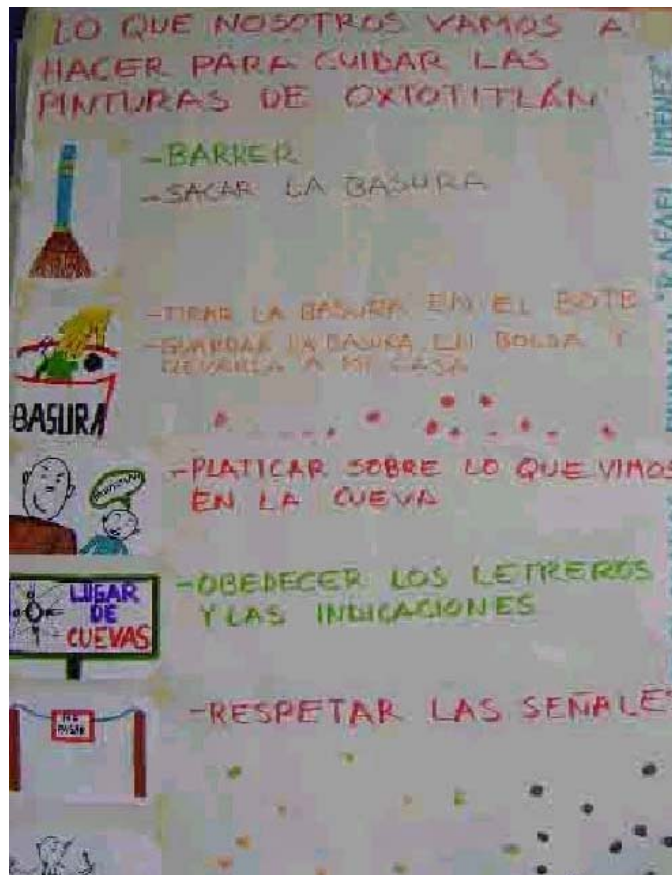 LO QUE NOSOTROS VAMOS A
HACER PARA CUIDAR LAS
PINTURAS DE OXTOTITLÁN
-BARRER
-SACAR LA BASURA
-TIRAR LA BASURA EN EL BOTE
-GUARDAR LA BASURA EN BOLSA Y
LLEVARLA A MI CASA
BASURA
-PLATICAR SOBRE LO QUE VIMOS
EN LA CUEVA
LUGAR
DE
CUEVAS
-OBEDECER LOS LETREROS
Y LAS INDICACIONES
NO
PASAR
-RESPETAR LAS SEÑALE
RAFAEL